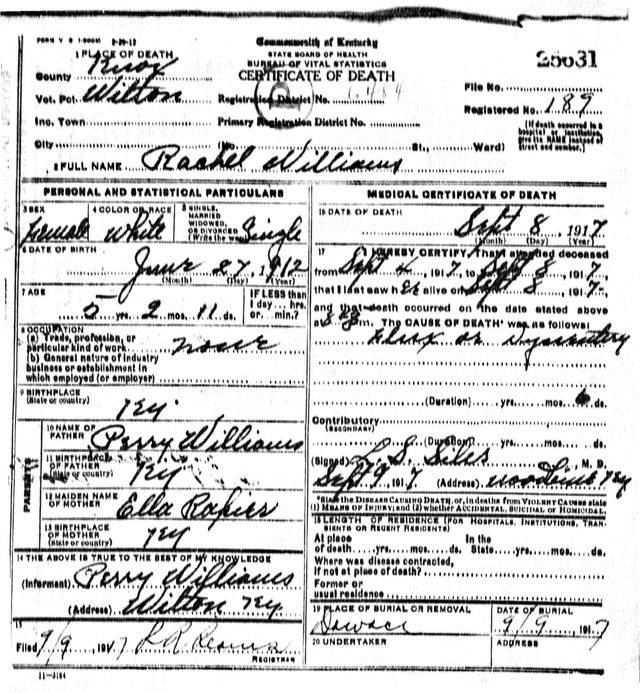 FORM V. S. 1-500M 8-29-12
Commonwealth of Kentucky
STATE BOARD OF HEALTH
BUREAU OF VITAL STATISTICS
CERTIFICATE OF DEATH
25631
1 PLACE OF DEATH
County Knox
Vot. Pct. Wilton
Inc. Town
City
Registration District No.
Primary Registration District No.
(No. St., Ward)
File No.
Registered No. 189
(If death occurred in a hospital or institution, give its NAME instead of street and number.)
2 FULL NAME Rachel Williams
PERSONAL AND STATISTICAL PARTICULARS
3 SEX Female
4 COLOR OR RACE White
5 SINGLE, MARRIED WIDOWED, OR DIVORCED (Write the word) Single
6 DATE OF BIRTH
June 27, 1912
(Month) (Day) (Year)
7 AGE
5 yrs. 2 mos. 11 ds.
IF LESS than 1 day... hrs. or min.?
8 OCCUPATION
(a) Trade, profession, or particular kind of work none
(b) General nature of industry
business or establishment in
which employed (or employer)
9 BIRTHPLACE
(State or country) Ky.
PARENTS
10 NAME OF FATHER Perry Williams
11 BIRTHPLACE OF FATHER (State or country) Ky
12 MAIDEN NAME OF MOTHER Ella Rapier
13 BIRTHPLACE OF MOTHER (State or country) Ky
14 THE ABOVE IS TRUE TO THE BEST OF MY KNOWLEDGE
(Informant) Perry Williams
(Address) Wilton Ky.
15
Filed 9/9 1917
REGISTRAR
11-3184
MEDICAL CERTIFICATE OF DEATH
16 DATE OF DEATH
Sept 8, 1917
(Month) (Day) (Year)
17 I HEREBY CERTIFY, That I attended deceased
from Sept 4, 1917, to Sept 8, 1917,
that I last saw her alive on Sept 8, 1917,
and that death occurred on the date stated above
at m. The CAUSE OF DEATH* was as follows:
Flux or Dysentery
(Duration) yrs. mos. 6 ds.
Contributory
(SECONDARY)
(Duration) yrs. mos. ds.
(Signed) L. S. Siler, M. D.
Sept 9 1917 (Address) Woodbine Ky
*State the DISEASE CAUSING DEATH, or, in deaths from VIOLENT CAUSES state
(1) MEANS OF INJURY; and (2) whether ACCIDENTAL, SUICIDAL or HOMICIDAL
18 LENGTH OF RESIDENCE (FOR HOSPITALS, INSTITUTIONS, TRANSIENTS OR RECENT RESIDENTS)
At place In the
of death yrs. mos. ds. State yrs. mos. ds.
Where was disease contracted,
if not at place of death?
Former or
usual residence
19 PLACE OF BURIAL OR REMOVAL
DATE OF BURIAL
9/9 1917
20 UNDERTAKER
ADDRESS